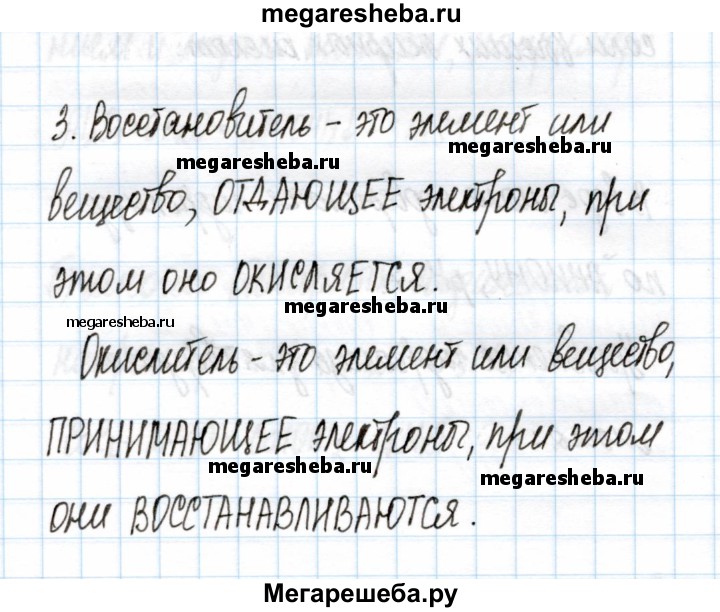 megaresheba.ru
3. Восстановитель - это элемент или
megaresheba.ru
megaresheba.ru
вещество, ОТДАЮЩЕЕ электроны, при
этом оно ОКИСЛЯЕТСЯ.
megaresheba.ru
megaresheba.ru
Окислитель - это элемент или вещество,
ПРИНИМАЮЩЕЕ электроны, при этом
megaresheba.ru
megaresheba.ru
они ВОССТАНАВЛИВАЮТСЯ.
Мегарешеба.ру